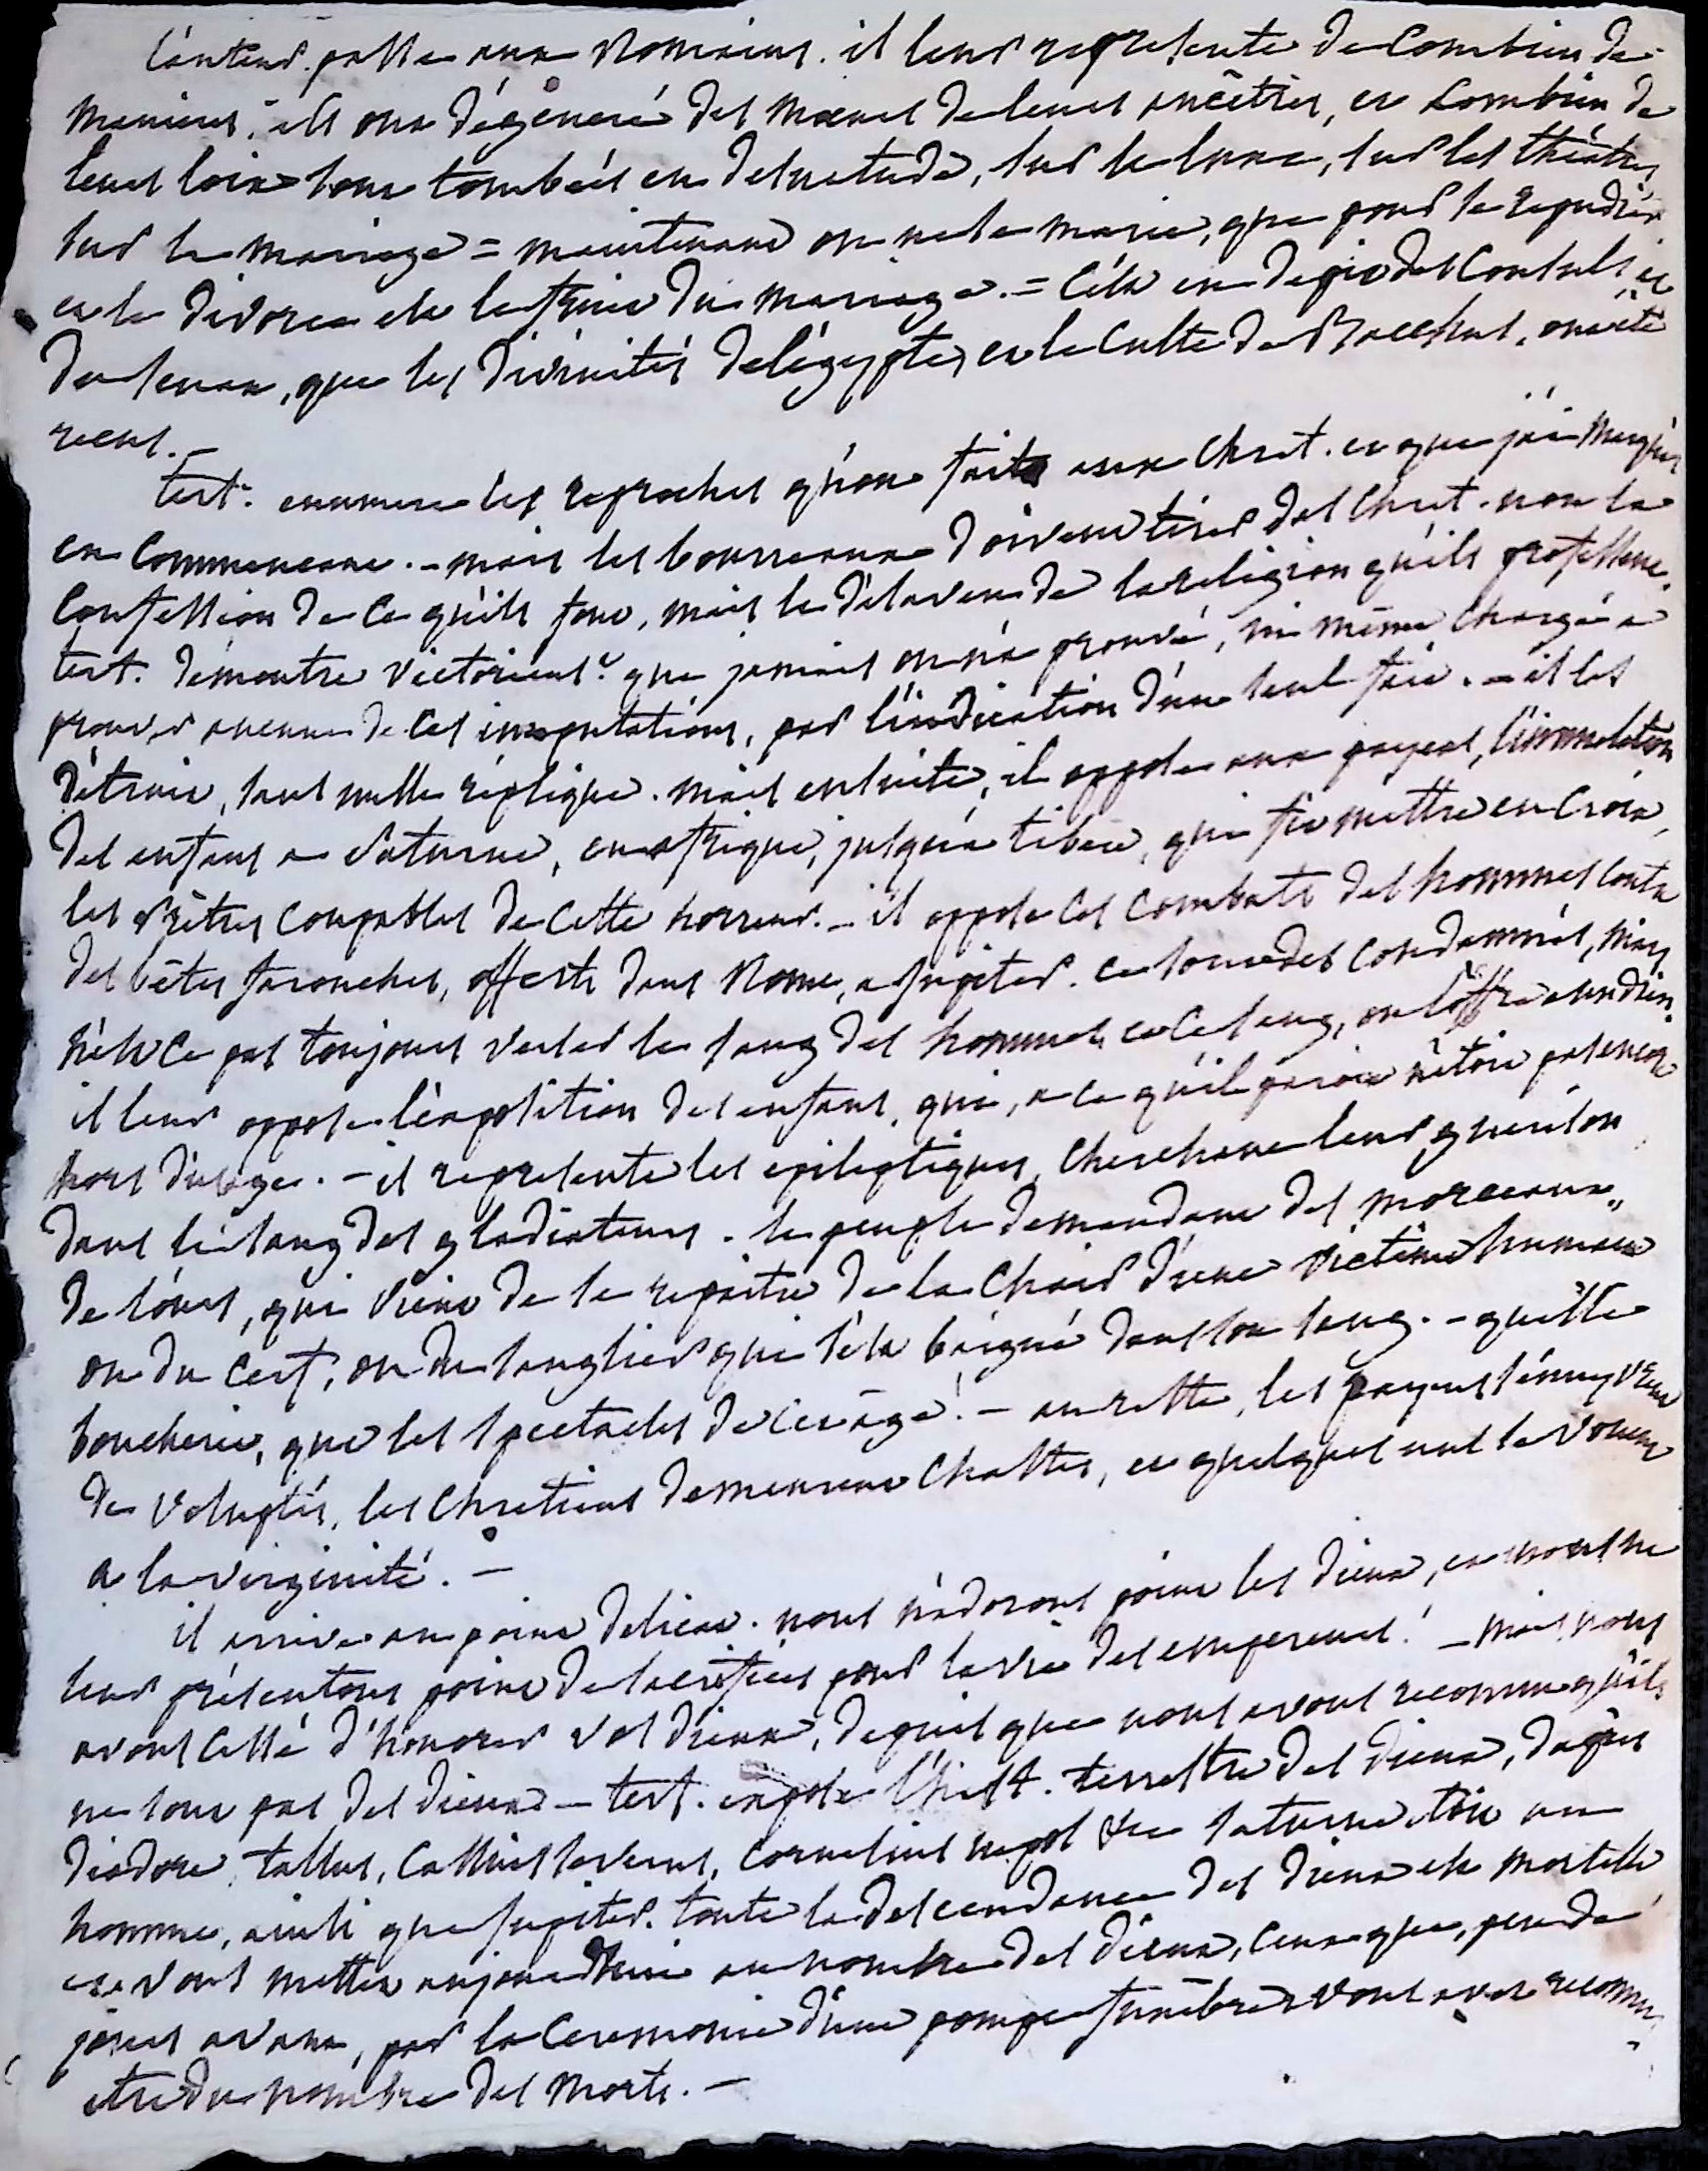 L'auteur passe aux Romains. il leur represente de Combien de
manieres, ils ont dégéneré des mœurs de leurs ancêtres, et Combien de
leurs loix sont tombées en desuetude, sur le luxe, sur les théatres
sur le mariage = maintenant on ne se marie, que pour se repudier
et le divorce est le fruit du mariage. = C'est en depit des Consuls, et
du senat, que les divinités de l'égypte, et le Culte de Bacchus, ont été
recus. -
tert. enumere les reproches qu'on fait aux Chret. et que j'ai marqués
en Commencant. - mais les bourreaux doivent tirer des Chret. non la
Confession de ce qu'ils font, mais le désaveu de la religion qu'ils professent.
tert. démontre victorieust. que jamais on n'a prouvé, ni même chargé a
prouver aucune de Ces imputations, par l'indication d'un seul fait. - il les
détruit, sans nulle réplique. mais ensuite, il oppose aux payens, l'immolation
des enfans a Saturne, en afrique, jusqu'a tibere, qui fit mettre en Croix,
les Prêtres Coupables de Cette horreur. - il oppose Ces Combats des hommes Contre
des bêtes farouches, offerts dans Rome, a Jupiter. ce sont des Condamnés, mais
n'est ce pas toujours verser le sang des hommes, et Ce sang, on l'offre a un dieu.
il leur oppose l'exposition des enfans, qui, a ce qu'il paroit n'étoit pas encor
hors d'usage. - il represente les epileptiques, Cherchant leur guerison
dans le sang des gladiateurs. le peuple demandant des morceaux,
de l'ours, qui vient de se repaitre de la Chair d'une victime humaine
ou du Cerf, ou du sanglier qui s'est baigné dans son sang. - quelle
boucherie, que les spectacles de Cet âge! - au reste, les payens s'ennyvrent
de voluptés, les Chretiens demeurent Chastes, et quelques uns se vouent
a la virginité. -
il arrive au point delicat. nous n'adorons point les dieux, et nous ne
leur présentons point de sacrifices pour la vie des empereurs! - mais nous
avons Cessé d'honorer vos dieux, depuis que nous avons reconnu qu'ils
ne sont pas des dieux - tert. expose l'hist. terrestre des dieux, d'après
diodore, tallus, Cassius severus, Cornelius nepos &c Saturne étoit un
homme, ainsi que Jupiter. toute la descendance des dieux est mortelle
et vous mettez aujourdhui au nombre des dieux, Ceux que, peu de
jours avant, par la Ceremonie d'une pompe funèbre vous avez reconnu
etre du nombre des morts. -